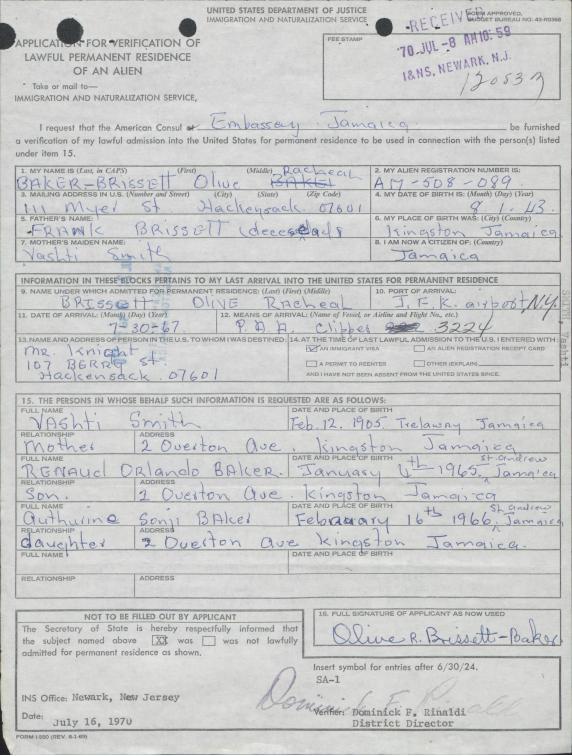 UNITED STATES DEPARTMENT OF JUSTICE
IMMIGRATION AND NATURALIZATION SERVICE
FORM APPROVED,
BUDGET BUREAU NO. 43-R0368
RECEIVED
'70 JUL-8 AM 10:59
I&NS, NEWARK, N.J.
APPLICATION FOR VERIFICATION OF
LAWFUL PERMANENT RESIDENCE
OF AN ALIEN
FEE STAMP
Take or mail to—
IMMIGRATION AND NATURALIZATION SERVICE,
I request that the American Consul at Embassy Jamaica be furnished
a verification of my lawful admission into the United States for permanent residence to be used in connection with the person(s) listed
under item 15.
1. MY NAME IS (Last, in CAPS) (First) (Middle) 2. MY ALIEN REGISTRATION NUMBER IS:
BAKER-BRISSETT Olive Racheal BAKER AM-508-089
3. MAILING ADDRESS IN U.S. (Number and Street) (City) (State) (Zip Code) 4. MY DATE OF BIRTH IS: (Month) (Day) (Year)
111 Myer St Hackensack 07601 9 1 43
5. FATHER'S NAME: 6. MY PLACE OF BIRTH WAS: (City) (Country)
FRANK BRISSETT Kingston Jamaica
7. MOTHER'S MAIDEN NAME 8. I AM NOW A CITIZEN OF: (Country)
Vashti Smith Jamaica
INFORMATION IN THESE BLOCKS PERTAINS TO MY LAST ARRIVAL INTO THE UNITED STATES FOR PERMANENT RESIDENCE
9. NAME UNDER WHICH ADMITTED FOR PERMANENT RESIDENCE: (Last) (First) (Middle) 10. PORT OF ARRIVAL:
BRISSETT OLIVE Racheal J.F.K. airport, N.Y.
11. DATE OF ARRIVAL: (Month) (Day) (Year) 12. MEANS OF ARRIVAL: (Name of Vessel, or Airline and Flight No., etc.)
7-30-67. P.A.A. Clipper 3224
13. NAME AND ADDRESS OF PERSON IN THE U.S. TO WHOM I WAS DESTINED: 14. AT THE TIME OF LAST LAWFUL ADMISSION TO THE U.S. I ENTERED WITH:
Mr. Knight
AN IMMIGRANT VISA AN ALIEN REGISTRATION RECEIPT CARD
107 BERRY St.
A PERMIT TO REENTER OTHER (EXPLAIN)
Hackensack 07601
AND I HAVE NOT BEEN ABSENT FROM THE UNITED STATES SINCE.
15. THE PERSONS IN WHOSE BEHALF SUCH INFORMATION IS REQUESTED ARE AS FOLLOWS:
FULL NAME DATE AND PLACE OF BIRTH
VAshti Smith Feb. 12. 1905 Trelawny Jamaica
RELATIONSHIP ADDRESS
Mother 2 Overton Ave Kingston Jamaica
FULL NAME DATE AND PLACE OF BIRTH
RENAUD Orlando BAKER. January 4th 1965 St. Andrew Jamaica
RELATIONSHIP ADDRESS
Son. 2 Overton Ave. Kingston Jamaica
FULL NAME DATE AND PLACE OF BIRTH
Authurine Sonji BAker February 16th 1966 St. Andrew Jamaica
RELATIONSHIP ADDRESS
daughter 2 Overton Ave Kingston Jamaica.
FULL NAME DATE AND PLACE OF BIRTH
RELATIONSHIP ADDRESS
NOT TO BE FILLED OUT BY APPLICANT
The Secretary of State is hereby respectfully informed that
the subject named above XX was was not lawfully
admitted for permanent residence as shown.
16. FULL SIGNATURE OF APPLICANT AS NOW USED
Olive R. Brissett-Baker
Insert symbol for entries after 6/30/24.
SA-1
INS Office: Newark, New Jersey
Dominick F. Rinaldi
Verifier: Dominick F. Rinaldi
Date: July 16, 1970
District Director
FORM I-550 (REV. 6-1-69)